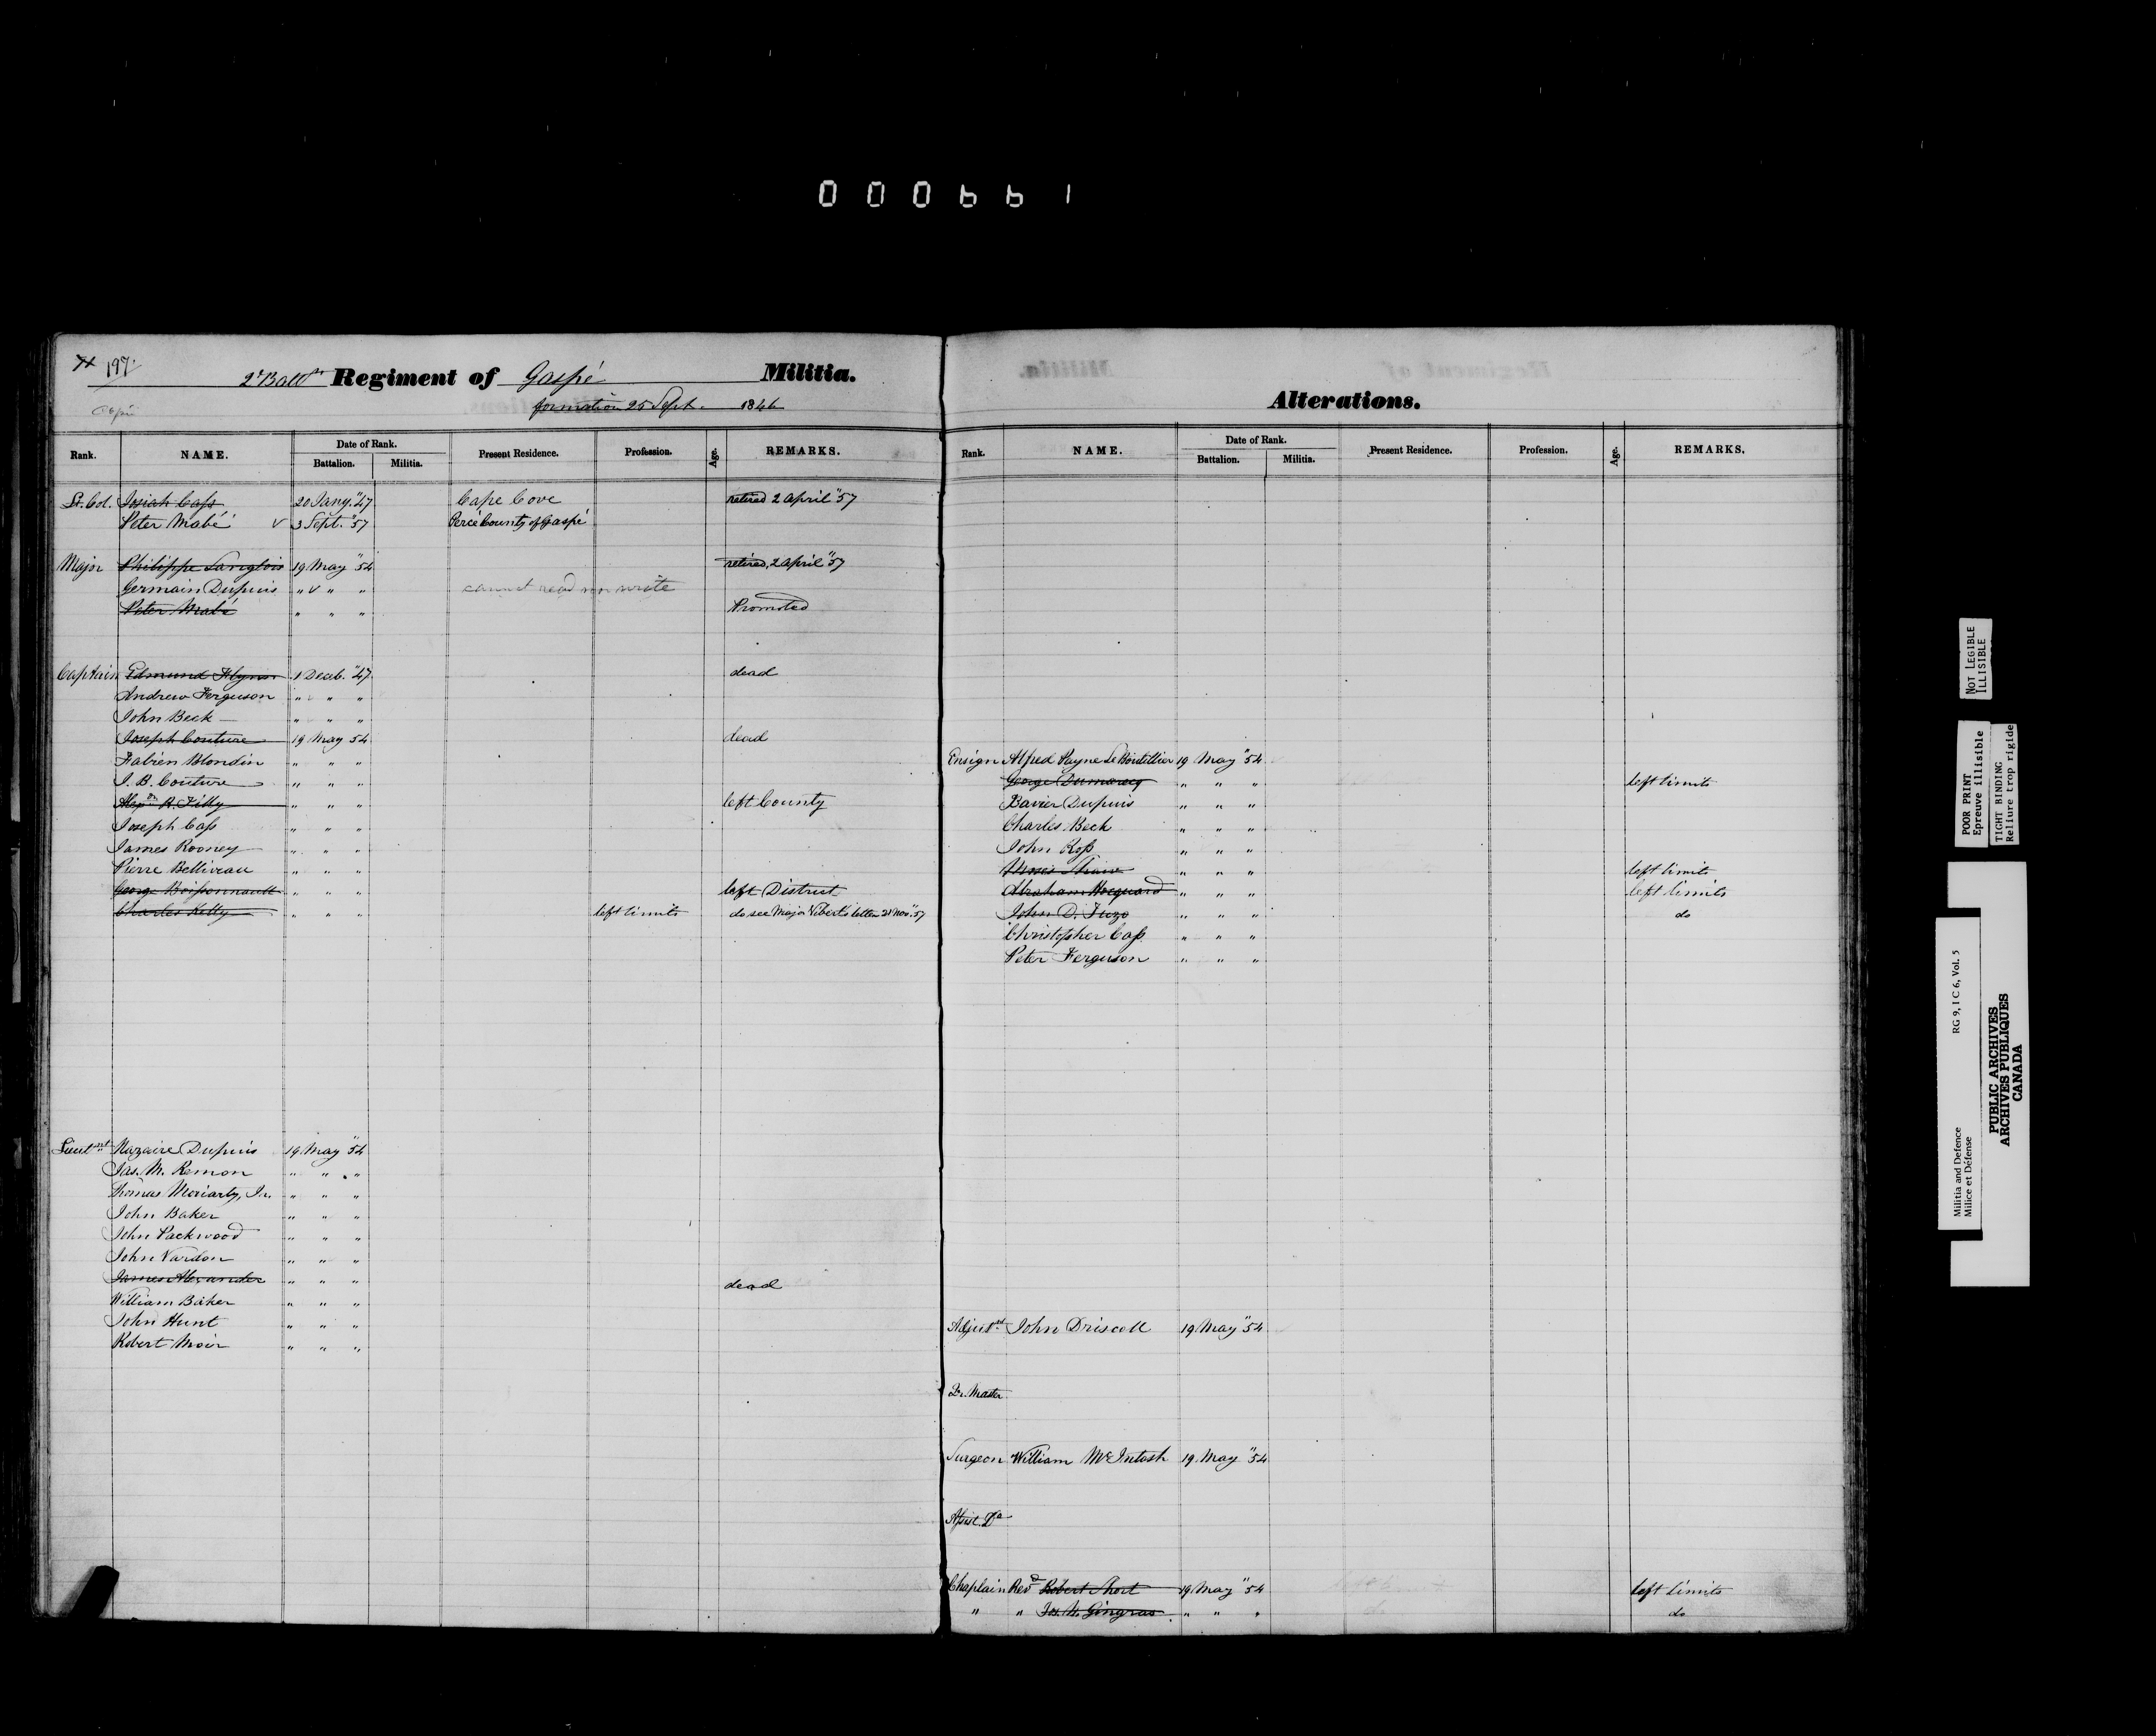 000661
197
2d Battn Regiment of Gaspé Militia.
formation 25 Sept. 1846
Rank. NAME. Date of Rank. Battalion. Militia. Present Residence. Profession. Age. REMARKS.
Lt. Col. Josiah Cass 20 Jany. "47 Cape Cove retired 2 April "57
Peter Mabé v 3 Sept. "57 Percé County of Gaspé
Major Philippe Langlois 19 May "54 retired, 2 April "57
Germain Dupuis " v " " cannot read nor write
Peter Mabé " " " Promoted
Captain Edmund Flynn 1 Decb. "47 dead
Andrew Ferguson " " "
John Beck " " "
Joseph Couture 19 May 54 dead
Fabien Blondin " " "
J. B. Couture " " "
Alexr. R. Tilly " " " left County
Joseph Cass " " "
James Rooney " " "
Pierre Belliveau " " "
George Boissonnault " " " left District
Charles Kelly " " " left limits do see Major Vibert's letter 21 Nov. "57
Lieutnt Nazaire Dupuis 19 May "54
Jas. M. Remon " " "
Thomas Moriarty, Jr. " " "
John Baker " " "
John Packwood " " "
John Vardon " " "
James Alexander " " " dead
William Baker " " "
John Hunt " " "
Robert Moir " " "
Alterations.
Rank. NAME. Date of Rank. Battalion. Militia. Present Residence. Profession. Age. REMARKS.
Ensign Alfred Payne Le Boutillier 19 May "54
George Dumaresq " " " left limits
Xavier Dupuis " " "
Charles Beck " " "
John Ross " " "
Moses " " " left limits
Abraham Hocquard " " " left limits
John D. Tuzo " " " do
Christopher Cass " " "
Peter Ferguson " " "
Adjutnt John Driscoll 19 May "54
Qr. Master
Surgeon William McIntosh 19 May "54
Assist. Do
Chaplain Revd Robert Short 19 May "54 left limits
" " Jos. N. Gingras " " " do
NOT LEGIBLE
ILLISIBLE
POOR PRINT
Epreuve illisible
TIGHT BINDING
Reliure trop rigide
Militia and Defence RG 9, I C 6, Vol. 5
Milice et Défense
PUBLIC ARCHIVES
ARCHIVES PUBLIQUES
CANADA